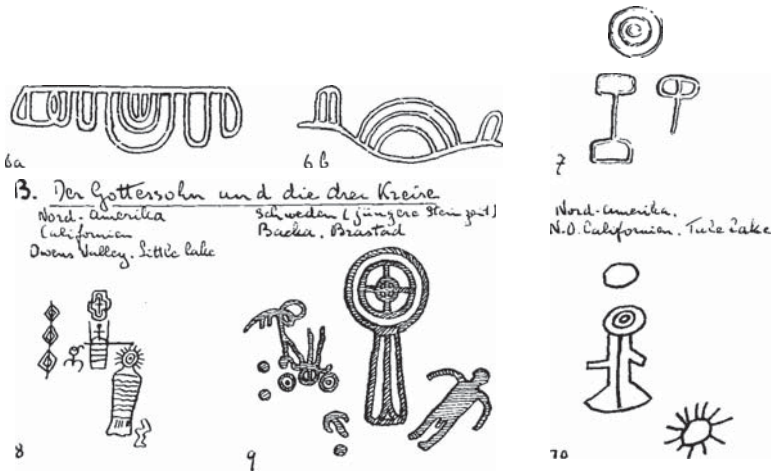 6a
6b
7
B. Der Gottessohn und die drei Kreise
Nord-Amerika
Californien
Owens Valley. Little Lake
Schweden (jüngere Steinzeit)
Backa. Brastad
Nord-Amerika.
N.O. Californien. Tule Lake
8
9
10